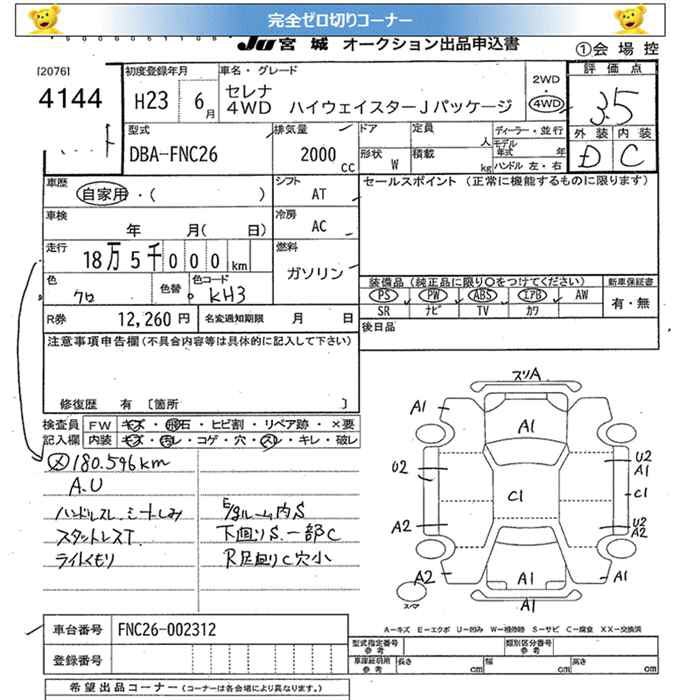 完全ゼロ切りコーナー
JU 宮城 オークション出品申込書
①会場控
[2076]
4144
初度登録年月
H23 6月
車名・グレード
セレナ
4WD ハイウェイスターJパッケージ
2WD
・
4WD
評価点
3.5
外装 内装
D C
型式
DBA-FNC26
排気量
2000 CC
ドア
定員 人
ディーラー・並行
モデル年式 年
形状 W
積載 kg
ハンドル 左・右
車歴
自家用・( )
シフト
AT
セールスポイント (正常に機能するものに限ります)
車検
年 月(日)
冷房
AC
走行
18万5千000km
燃料
ガソリン
色
クロ
色替
色コード
KH3
装備品 (純正品に限り○をつけてください)
新車保証書
PS PW ABS エアB AW
有・無
SR ナビ TV カワ
R券 12,260円
名変通知期限 月 日
後日品
注意事項申告欄 (不具合内容等は具体的に記入して下さい)
修復歴 有 [箇所 ]
検査員 FW キズ・飛石・ヒビ割・リペア跡・×要
記入欄 内装 キズ・汚レ・コゲ・穴・スレ・キレ・破レ
メ 180.596km
A.U
ハンドルスレ.シートしみ
スタットレスT.
ライトくもり
E/gルーム内S
下回りS.一部C
R足回りC穴小
スリA
A1
A1
U2
U2
A1
C1
C1
A2
U2
A2
A2
A1
A1
A1
スペア
A-キズ E-エクボ U-凹み W-補修跡 S-サビ C-腐食 XX-交換済
車台番号 FNC26-002312
登録番号
型式指定番号
類別区分番号
車庫証明用参考
長さ cm 幅 cm 高さ cm
希望出品コーナー (コーナーは各会場により異なります。)